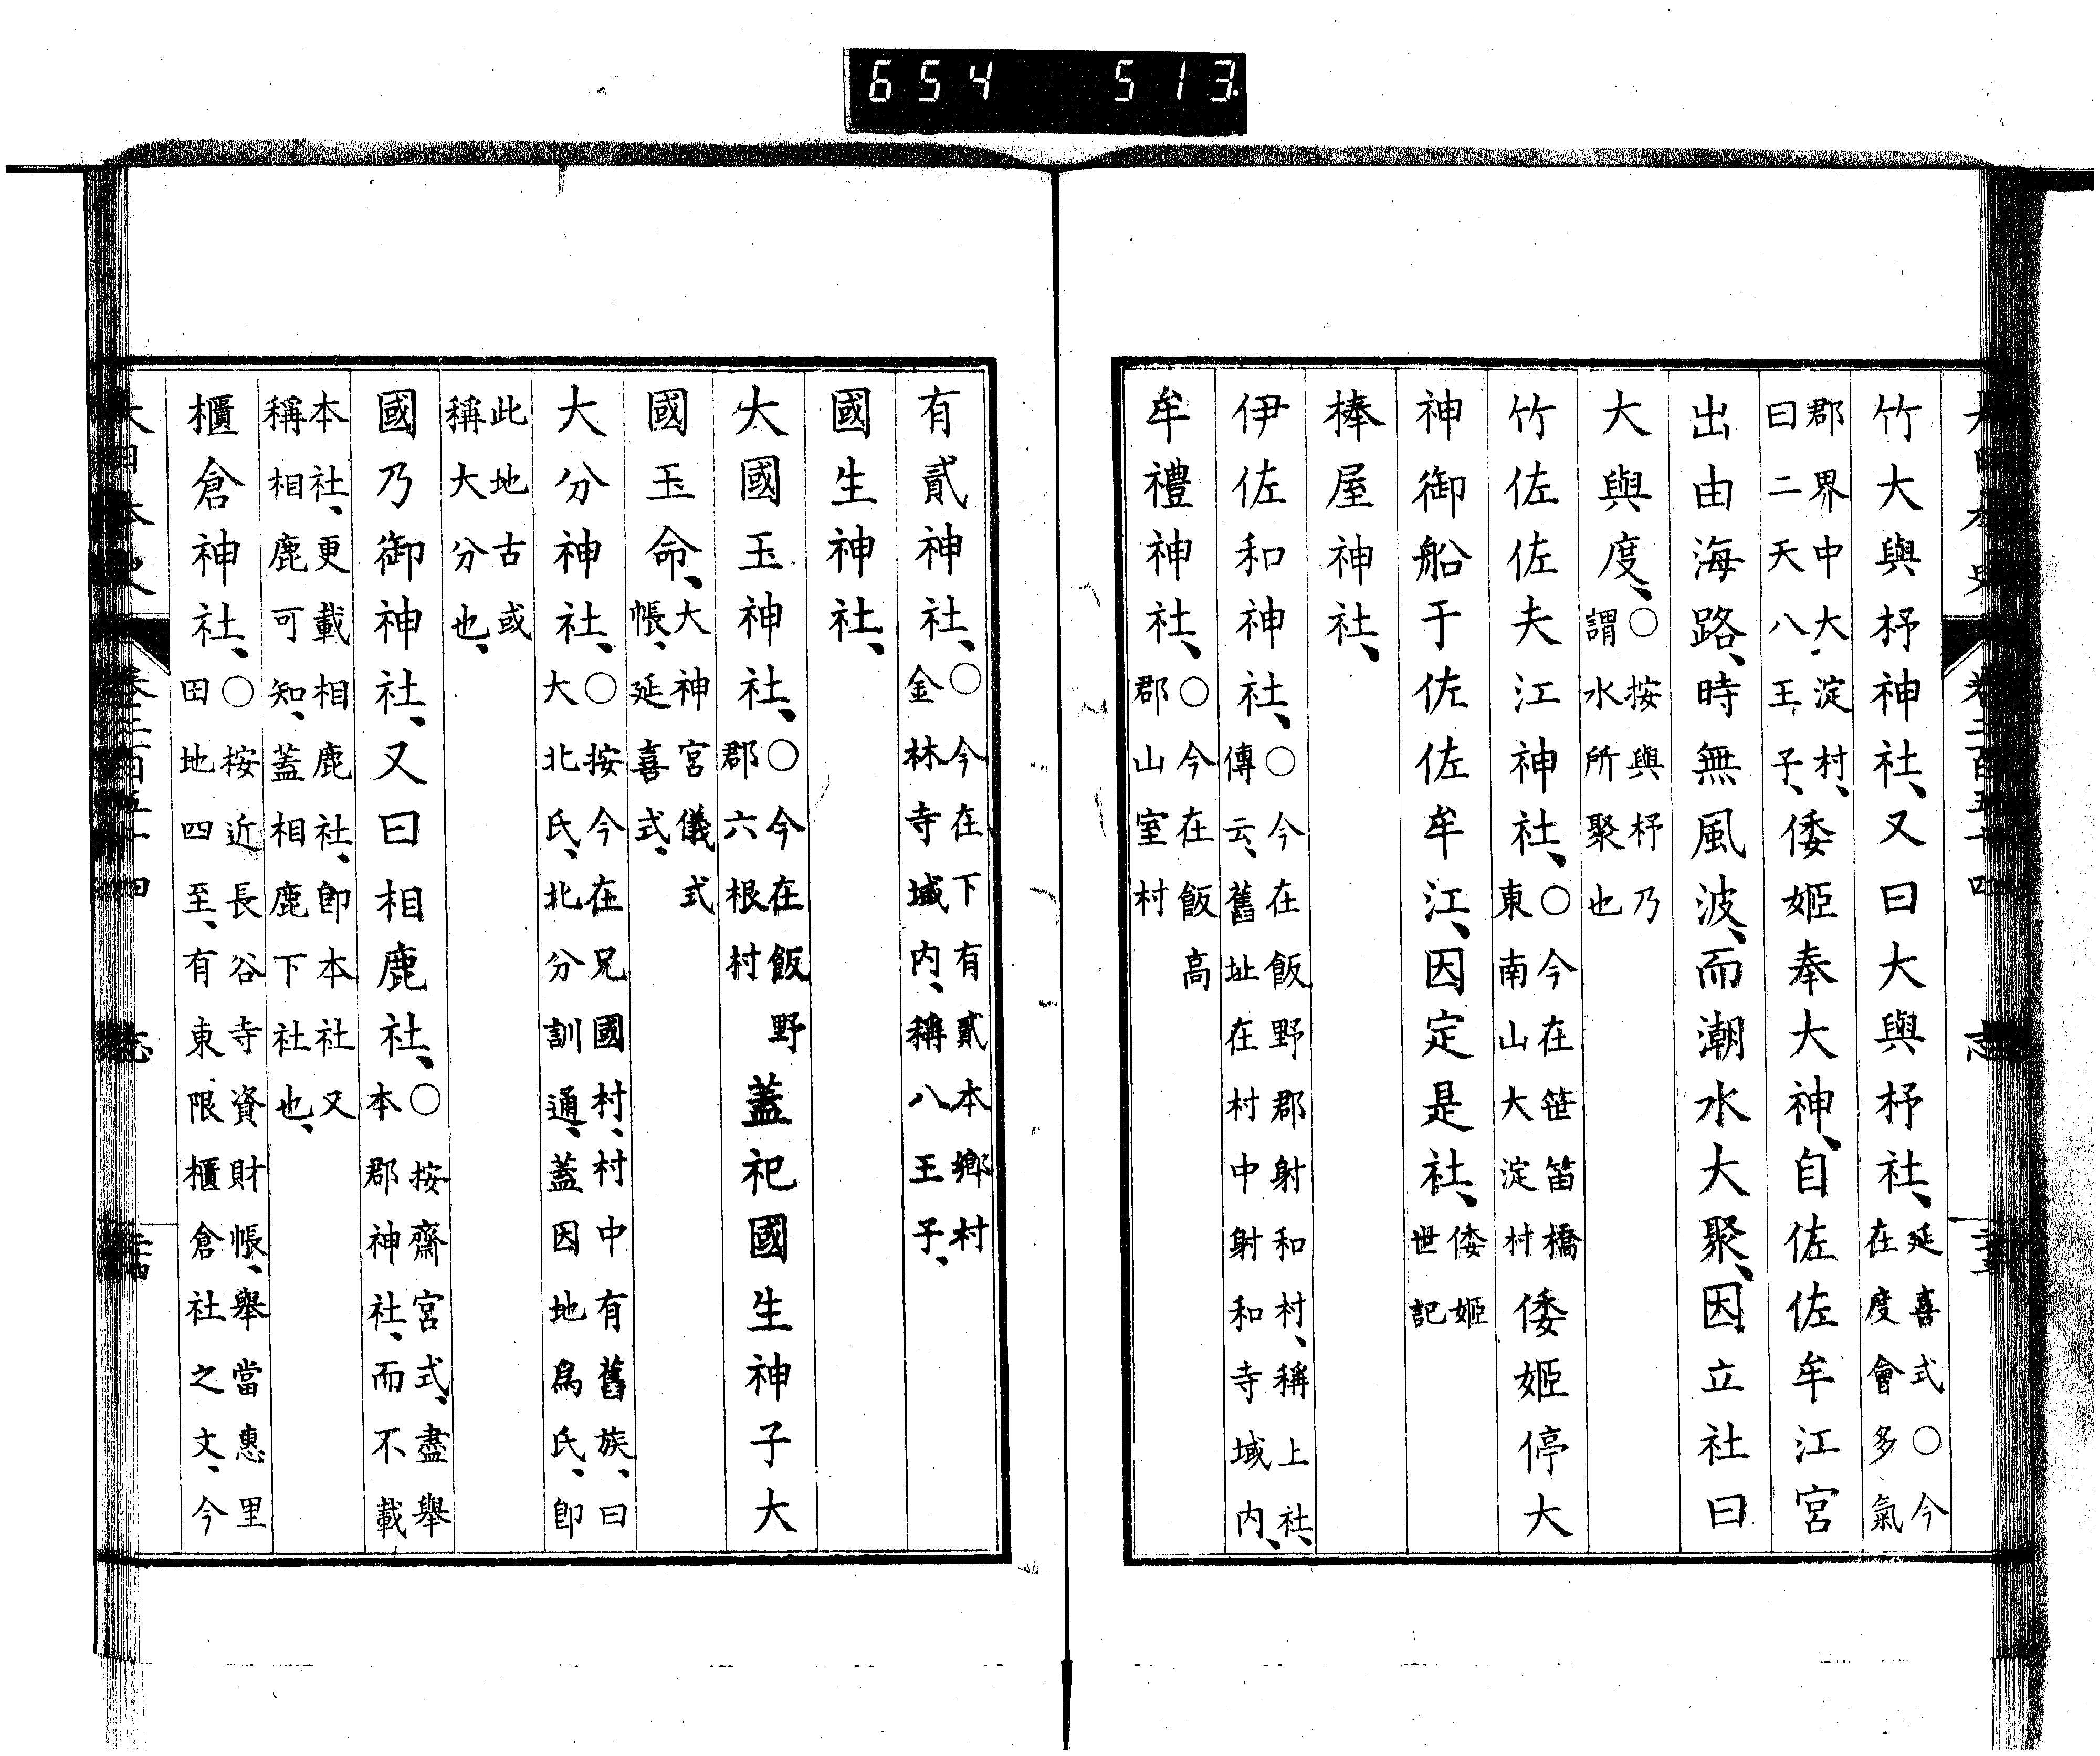 654 513
大日本史 卷二百五十四 志
竹大與杼神社、又曰大與杼社、延喜式○今在度會多氣
郡界中大淀村、曰二天八王子、倭姬奉大神、自佐佐牟江宮
出由海路、時無風波、而潮水大聚、因立社曰
大與度、○按與杼乃謂水所聚也
竹佐佐夫江神社、○今在笹笛橋東南山大淀村倭姬停大
神御船于佐佐牟江、因定是社、倭姬世記
棒屋神社、
伊佐和神社、○今在飯野郡射和村、稱上社、傳云、舊址在村中射和寺域内、
牟禮神社、○今在飯高郡山室村
有貳神社、○今在下有貳本鄉村金林寺域内、稱八王子、
國生神社、
大國玉神社、○今在飯野郡六根村蓋祀國生神子大
國玉命、大神宮儀式帳、延喜式、
大分神社、○按今在兄國村、村中有舊族、曰大北氏、北分訓通、蓋因地爲氏、卽
此地古或稱大分也、
國乃御神社、又曰相鹿社、○按齋宮式、盡舉本郡神社、而不載
本社、更載相鹿社、卽本社又稱相鹿可知、蓋相鹿下社也、
櫃倉神社、○按近長谷寺資財帳、舉當惠里田地四至、有東限櫃倉社之文、今
大日本史 卷二百五十四 志